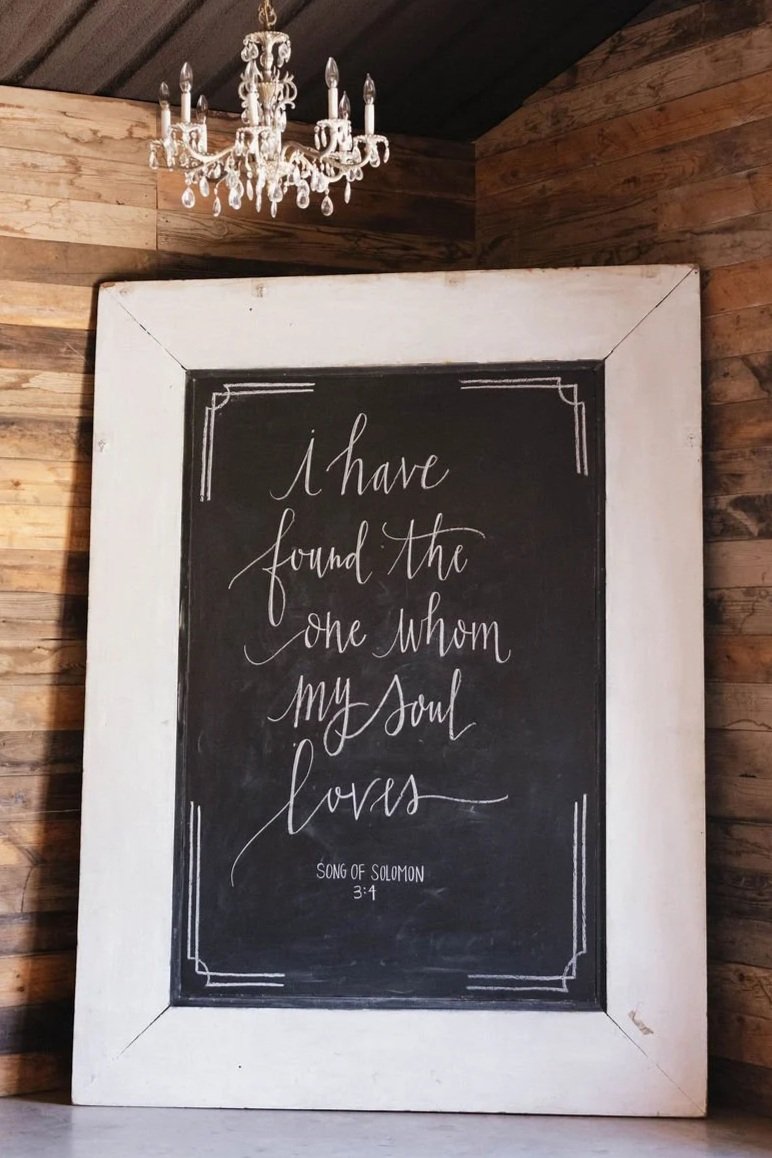 i have
found the
one whom
my soul
loves
SONG OF SOLOMON
3:4